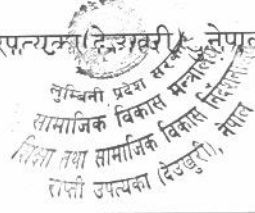 उपत्यका(देउखुरी), नेपाल
लुम्बिनी प्रदेश सरकार
सामाजिक विकास मन्त्रालय
सामाजिक विकास निर्देशनालय
शिक्षा तथा
राप्ती उपत्यका (देउखुरी), नेपाल